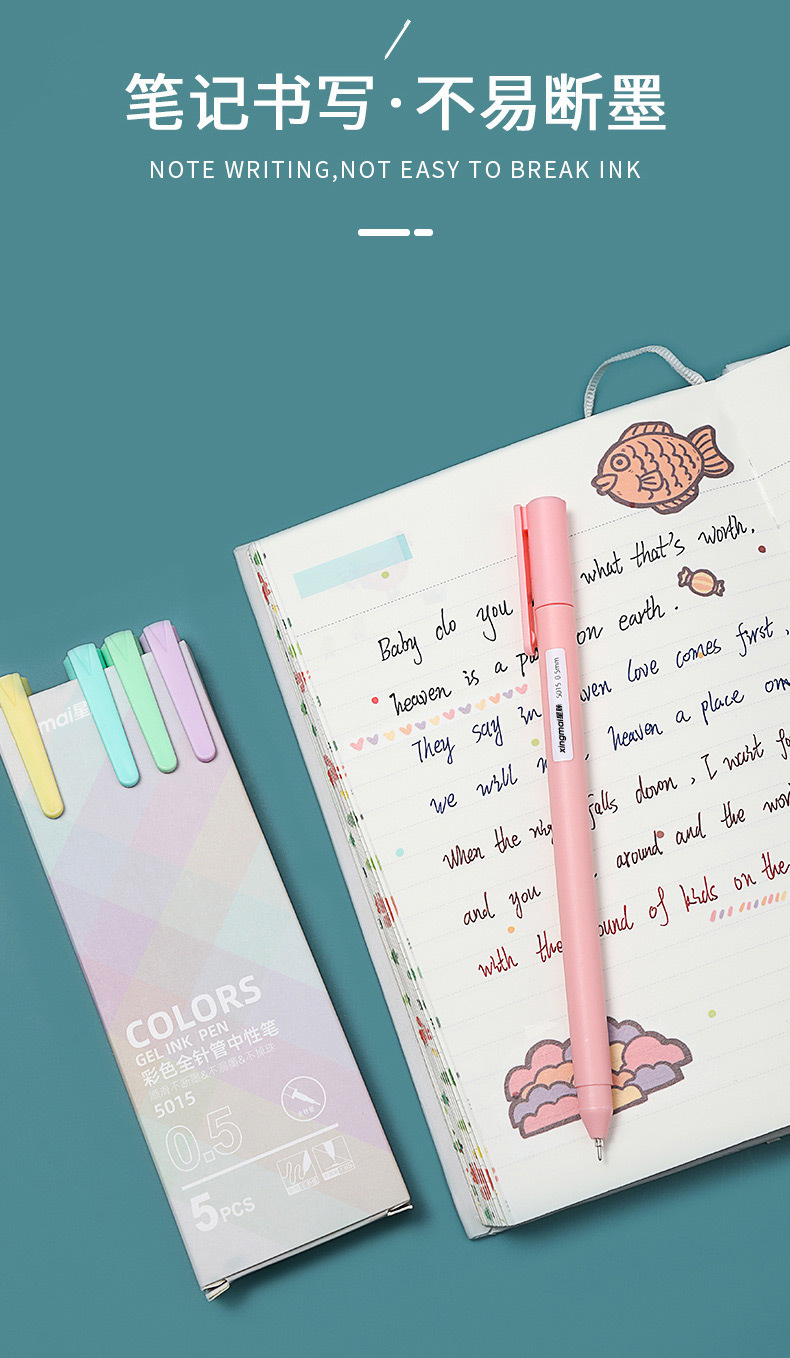 笔记书写·不易断墨
NOTE WRITING,NOT EASY TO BREAK INK
what that's worth.
Baby do you
on earth.
heaven is a
heaven love comes first,
They say in
heaven a place on
we will
falls down, I wait
When the
around and the
and you
sound of kids on the
with the
xingmai星脉 5015 0.5mm
mai星
COLORS
GEL INK PEN
彩色全针管中性笔
5015
0.5
5PCS